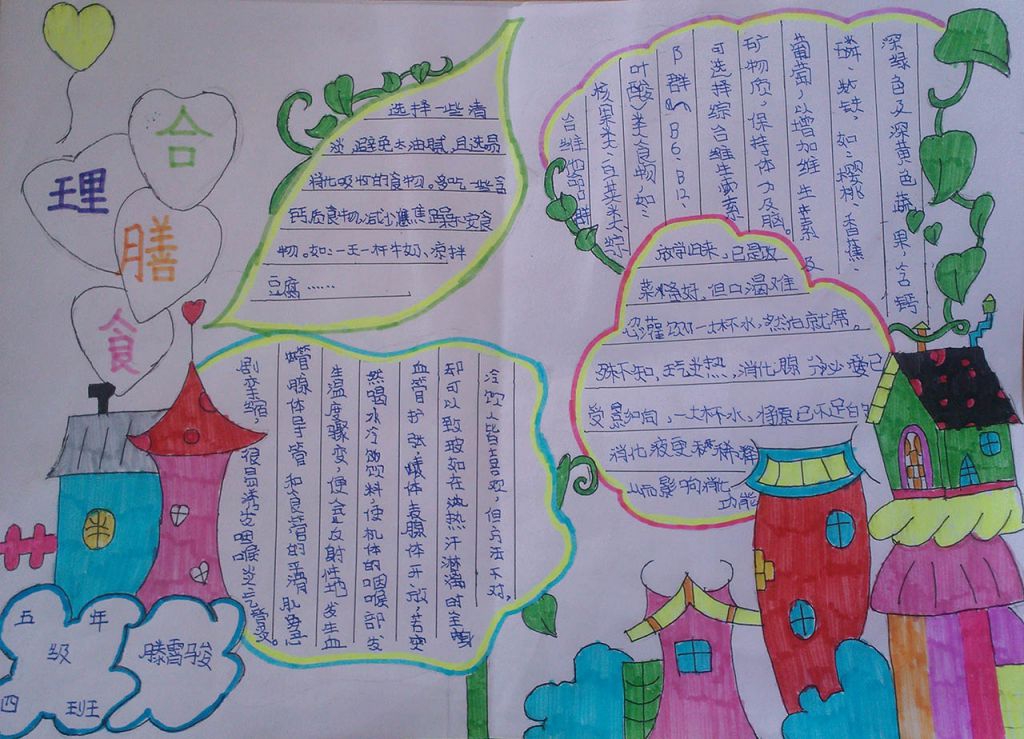 合
理
膳
食
选择一些清
淡,避免太油腻,且选易
消化吸收的食物。多吃一些含
钙质食物,减少焦躁不安食
物。如:一天一杯牛奶,凉拌
豆腐……
深绿色及深黄色蔬果,含钙
磷、铁,如:樱桃、香蕉、
葡萄,以增加维生素及
矿物质,保持体力及脑。
可选择综合维生素
B群(B6、B12、
叶酸)类食物,如:
核果类、豆荚类或综
合维他命B群
放学归来,已是饭
菜将好,但口渴难
忍,灌饮一大杯水,然后就席。
殊不知,天气炎热,消化腺分泌己
受影响,一大杯水,将原已不足的
消化液变稀释
从而影响消化
功能
冷饮人皆喜欢,但方法不对,
却可以致病。如在烈热汗淋漓时全身
血管扩张,咽体表腺体开放,若突
然喝冰冷饮料使机体的咽喉部发
生温度骤变,便会反射性地发生血
管、腺体导管和食管的平滑肌急
剧挛缩,很易诱发咽喉炎、气管炎。
五年
级
四班
滕雪骏